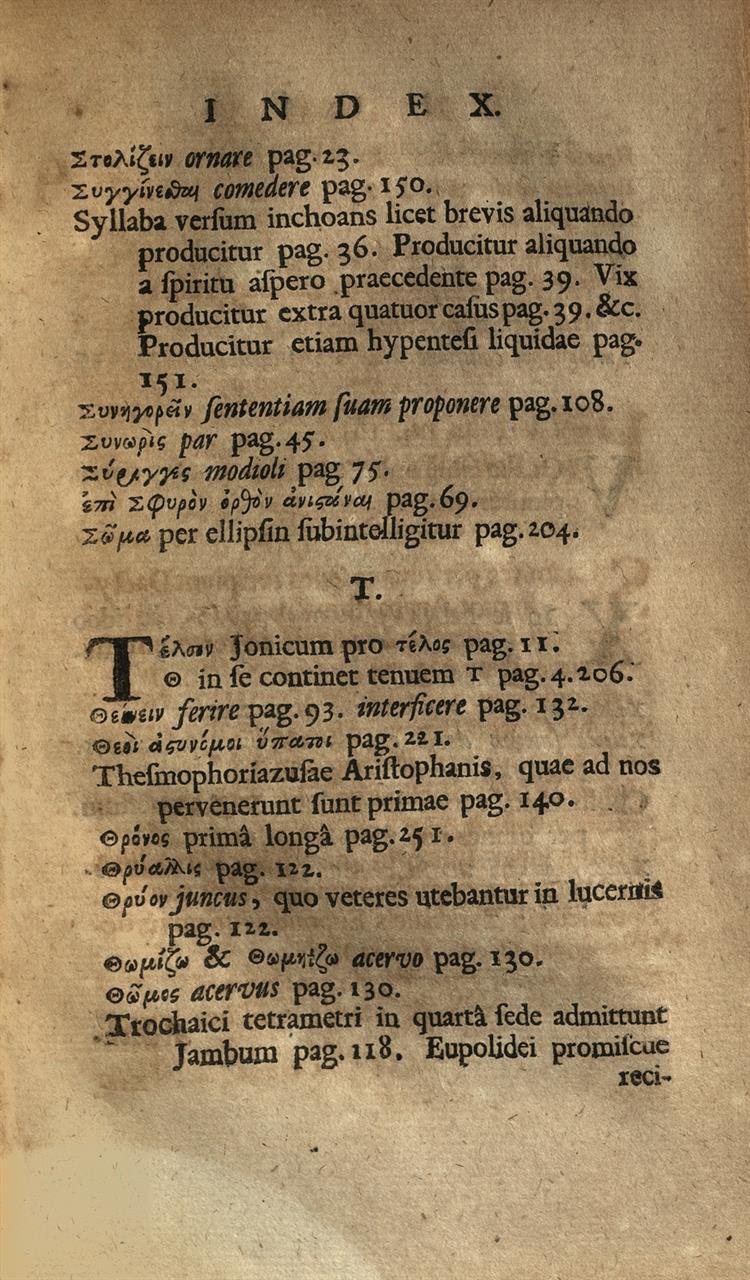 INDEX.
Στολίζειν ornare pag. 23.
Συγγίνεσθαι comedere pag. 150.
Syllaba verſum inchoans licet brevis aliquando
producitur pag. 36. Producitur aliquando
a ſpiritu aſpero praecedente pag. 39. Vix
producitur extra quatuor caſus pag. 39. &c.
Producitur etiam hypenteſi liquidae pag.
151.
Συνηγορεῖν ſententiam ſuam proponere pag. 108.
Συνωρὶς par pag. 45.
Σύριγγες modioli pag 75.
ἐπὶ Σφυρὸν ὀρθὸν ἀνιστάναι pag. 69.
Σῶμα per ellipſin ſubintelligitur pag. 204.
T.
Τέλσον Jonicum pro τέλος pag. 11.
Θ in ſe continet tenuem T pag. 4. 206.
Θείνειν ferire pag. 93. interficere pag. 132.
Θεοὶ ἀγυνόμοι ὕπατοι pag. 221.
Theſmophoriazuſae Ariſtophanis, quae ad nos
pervenerunt ſunt primae pag. 140.
Θρόνος primâ longâ pag. 251.
Θρύαλλις pag. 122.
Θρύον juncus, quo veteres utebantur in lucernis
pag. 122.
Θωμίζω & Θωμήζω acervo pag. 130.
Θῶμος acervus pag. 130.
Trochaici tetrametri in quartâ ſede admittunt
Jambum pag. 118. Eupolidei promiſcue
reci-